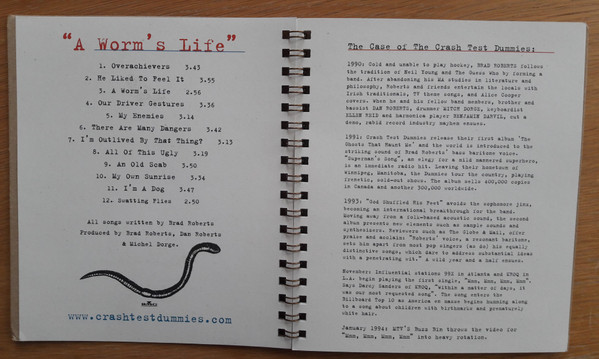 "A Worm's Life"
1. Overachievers 3.43
2. He Liked To Feel It 3.55
3. A Worm's Life 2.56
4. Our Driver Gestures 3.36
5. My Enemies 3.14
6. There Are Many Dangers 3.42
7. I'm Outlived By That Thing? 3.13
8. All Of This Ugly 3.19
9. An Old Scab 3.50
10. My Own Sunrise 3.34
11. I'm A Dog 3.47
12. Swatting Flies 2.50
All songs written by Brad Roberts
Produced by Brad Roberts, Dan Roberts
& Michel Dorge.
BMG
www.crashtestdummies.com
The Case of The Crash Test Dummies:
1990: Cold and unable to play hockey, BRAD ROBERTS follows
the tradition of Neil Young and The Guess Who by forming a
band. After abandoning his MA studies in literature and
philosophy, Roberts and friends entertain the locals with
Irish traditionals, TV theme songs, and Alice Cooper
covers. When he and his fellow band members, brother and
bassist DAN ROBERTS, drummer MITCH DORGE, keyboardist
ELLEN REID and harmonica player BENJAMIN DARVILL, cut a
demo, rabid record industry mayhem ensues.
1991: Crash Test Dummies release their first album 'The
Ghosts That Haunt Me' and the world is introduced to the
striking sound of Brad Roberts' bass baritone voice.
"Superman's Song", an elegy for a mild mannered superhero,
is an immediate radio hit. Leaving their hometown of
Winnipeg, Manitoba, the Dummies tour the country, playing
frenetic, sold-out shows. The album sells 400,000 copies
in Canada and another 300,000 worldwide.
1993: "God Shuffled His Feet" avoids the sophomore jinx,
becoming an international breakthrough for the band.
Moving away from a folk-based acoustic sound, the second
album presents new elements such as sample sounds and
synthesizers. Reviewers such as The Globe & Mail, offer
praise and acclaim: "Roberts' voice, a resonant baritone,
sets him apart from most pop singers (as do) his equally
distinctive songs, which dare to address substantial ideas
with a penetrating wit." A wild year and a half ensues.
November: Influential stations 99X in Atlanta and KROQ in
L.A. begin playing the first single, "Mmm, Mmm, Mmm, Mmm".
Says Darcy Sanders of KROQ, "within a matter of days, it
was our most requested song". The song enters the
Billboard Top 10 as America en masse begins humming along
to a song about children with birthmarks and prematurely
white hair.
January 1994: MTV's Buzz Bin throws the video for
"Mmm, Mmm, Mmm, Mmm" into heavy rotation.